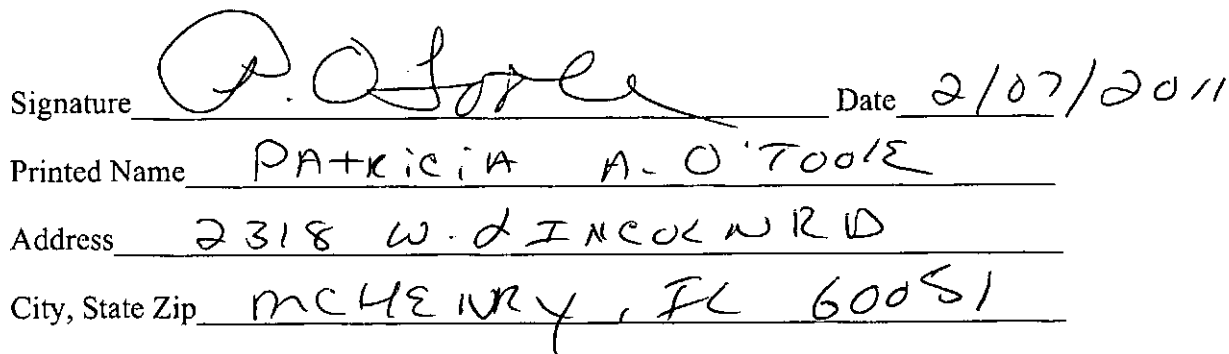 Signature P. O'Toole Date 2/07/2011
Printed Name PAtRiciA A. O'TOOlE
Address 2318 W. LINCOLN RD
City, State Zip MCHENRY, IL 60051